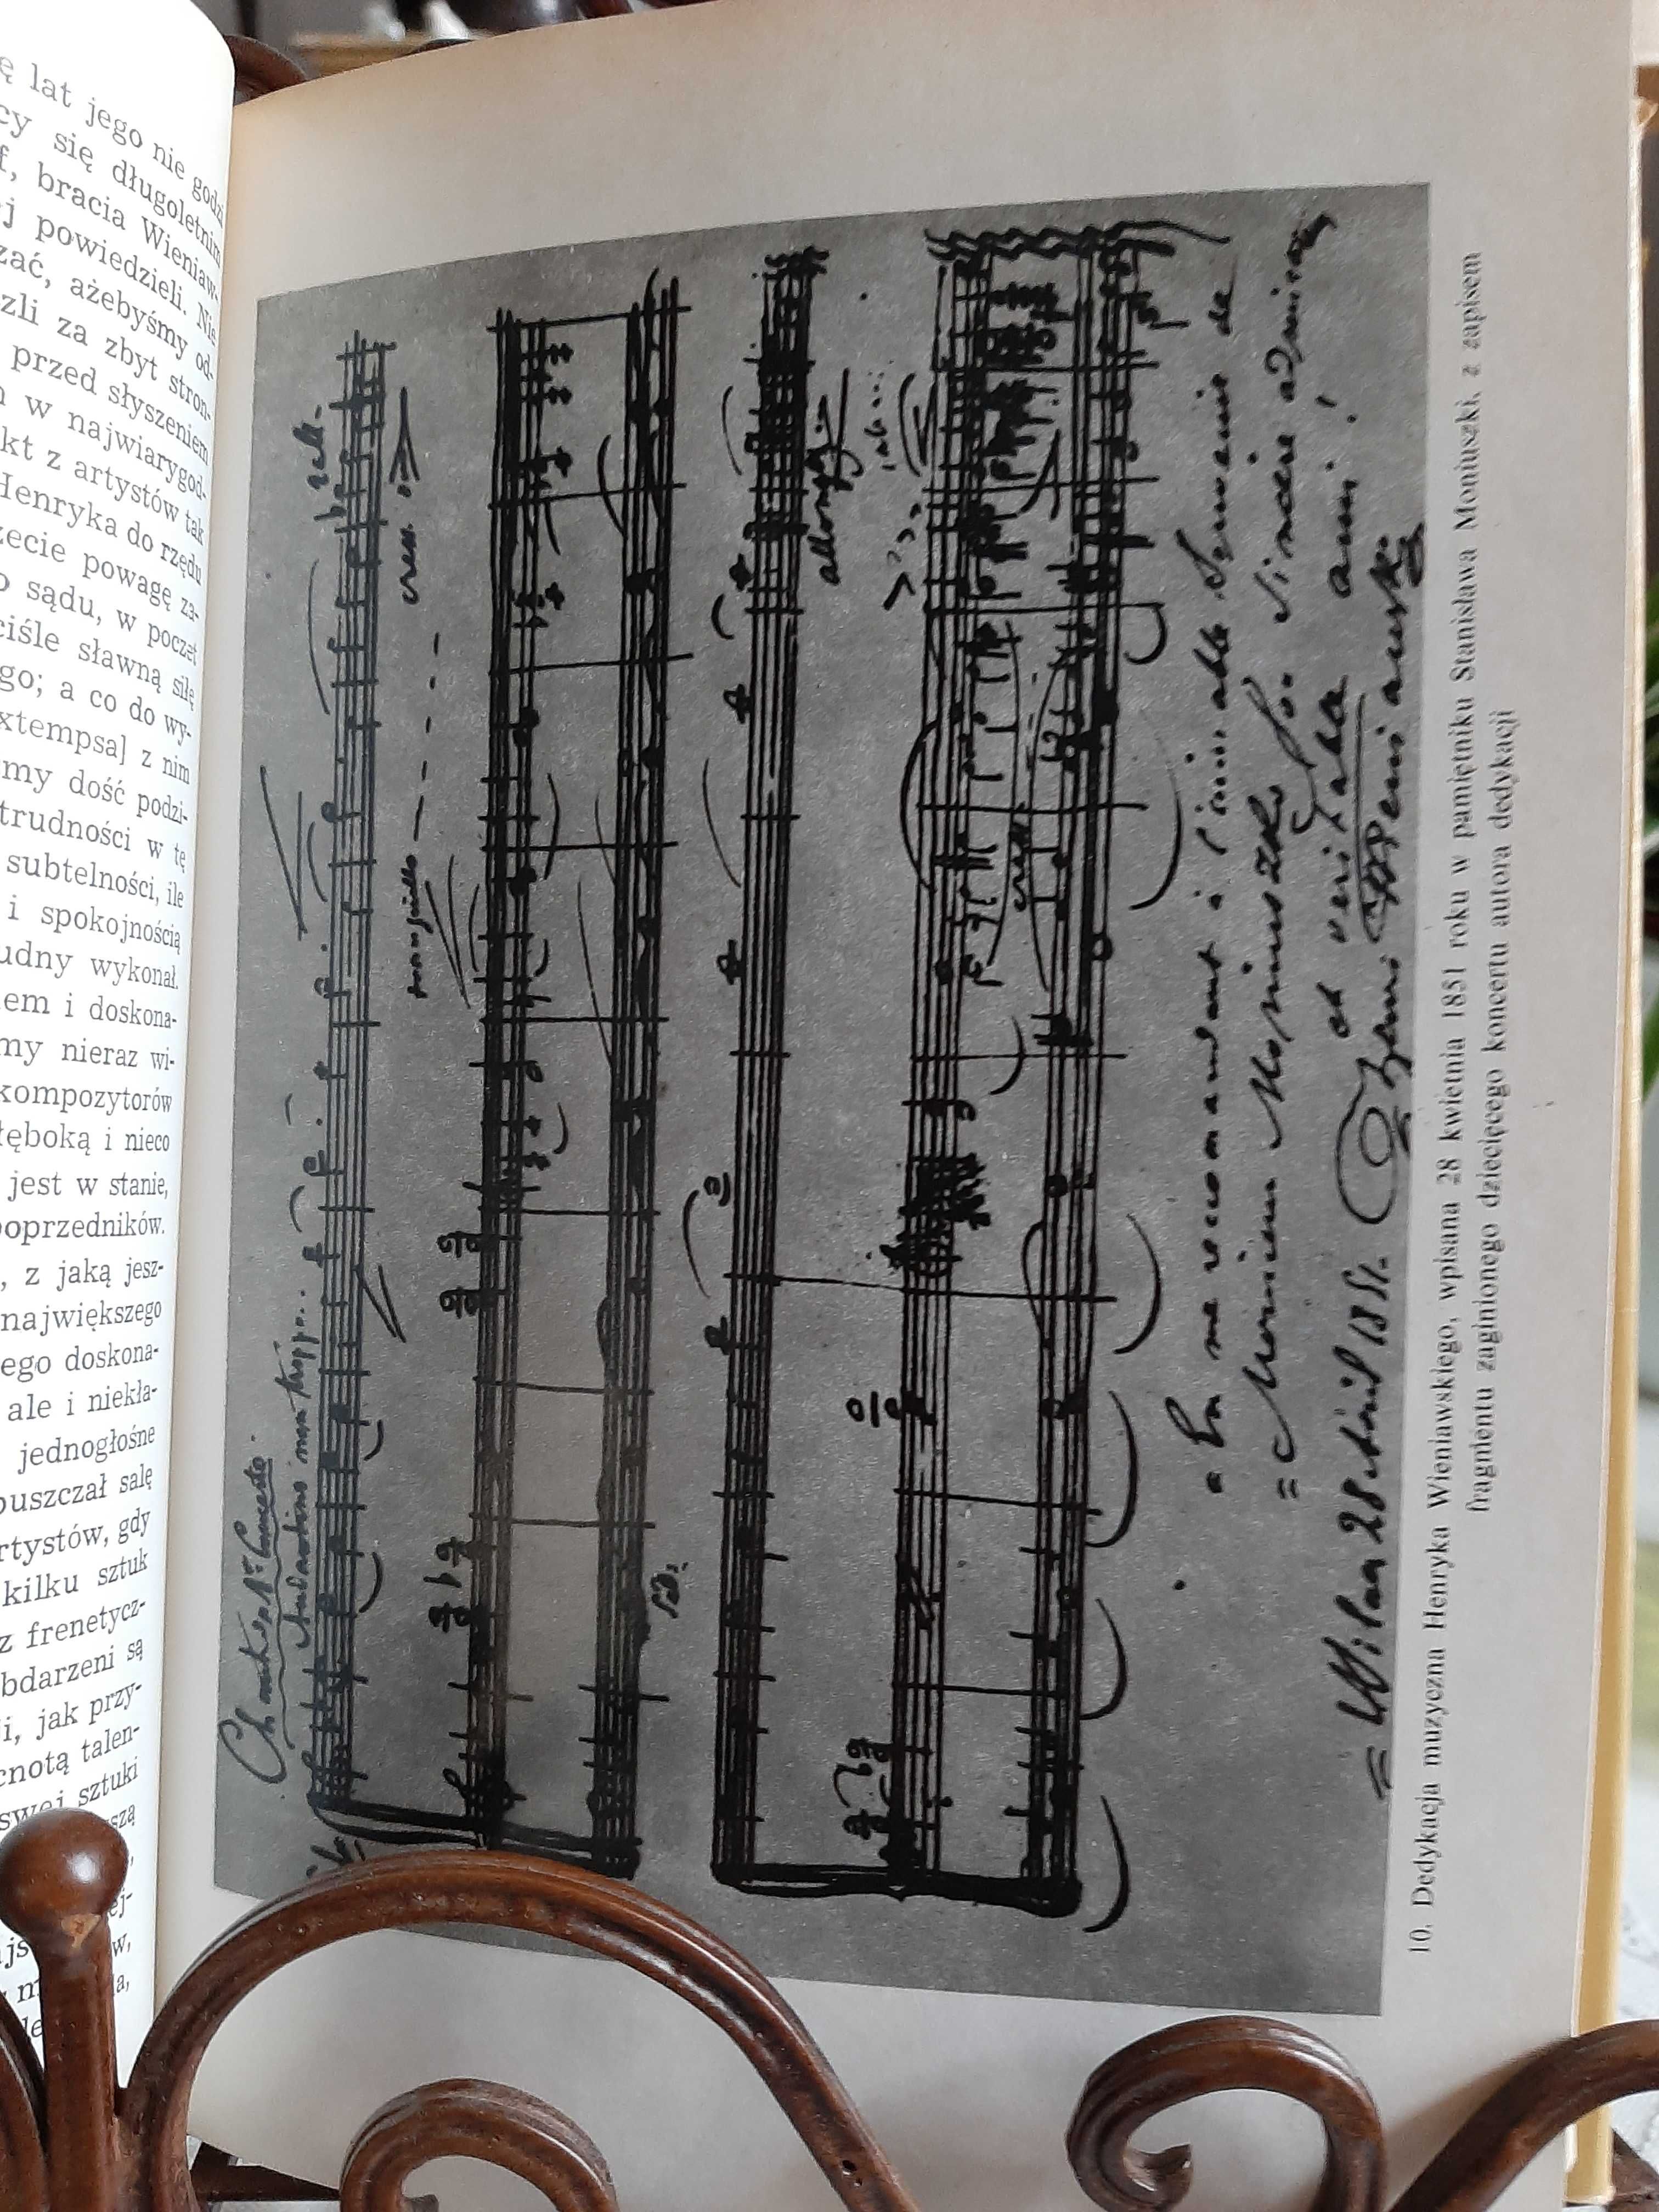 ę lat jego nie godzi
cy się długoletnim
f, bracia Wieniaw-
j powiedzieli. Nie
zać, ażebyśmy od-
zli za zbyt stron-
przed słyszeniem
w najwiarygod-
kt z artystów tak
Henryka do rzędu
ecie powagę za-
o sądu, w poczet
ciśle sławną siłę
go; a co do wy-
xtempsa] z nim
my dość podzi-
trudności w tę
subtelności, ile
i spokojnością
udny wykonał.
em i doskona-
my nieraz wi-
kompozytorów
łęboką i nieco
jest w stanie,
poprzedników.
, z jaką jesz-
największego
ego doskona-
ale i niekła-
jednogłośne
puszczał salę
rtystów, gdy
kilku sztuk
z frenetycz-
bdarzeni są
i, jak przy-
cnotą talen-
swej sztuki
Andantino non troppo
cresc.
allarg.
cresc.
En me recommandant à l'aimable Souvenir de
Monsieur Moniuszko Son sincère admirateur
et véritable ami!
Wilna 28 Avril 1851. Henri Wieniawski
10. Dedykacja muzyczna Henryka Wieniawskiego, wpisana 28 kwietnia 1851 roku w pamiętniku Stanisława Moniuszki, z zapisem
fragmentu zaginionego dziecięcego koncertu autora dedykacji